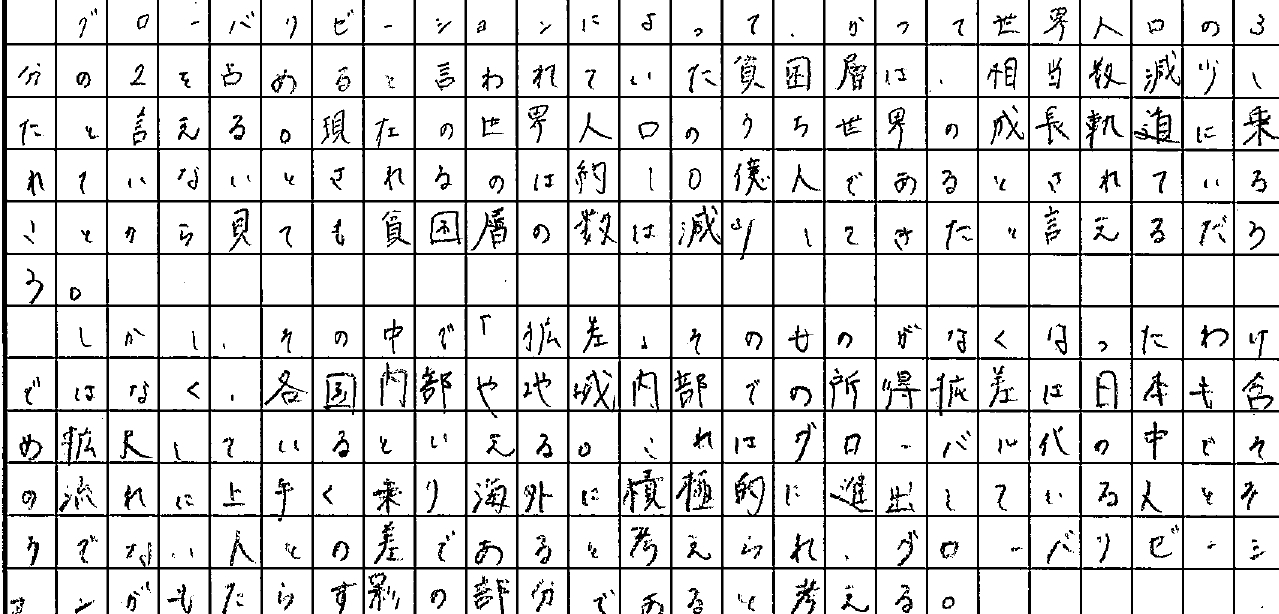 グローバリゼーションによって、かつて世界人口の3
分の2を占めると言われていた貧困層は、相当数減少し
たと言える。現在の世界人口のうち世界の成長軌道に乗
れていないとされるのは約10億人であるとされている
ことから見ても貧困層の数は減少してきたと言えるだろ
う。
しかし、その中で「拡差」そのものがなくなったわけ
ではなく、各国内部や地域内部での所得拡差は日本も含
め拡大しているといえる。これはグローバル代の中でそ
の流れに上手く乗り海外に積極的に進出している人とそ
うでない人との差であると考えられ、グローバリゼーシ
ョンがもたらす影の部分であると考える。